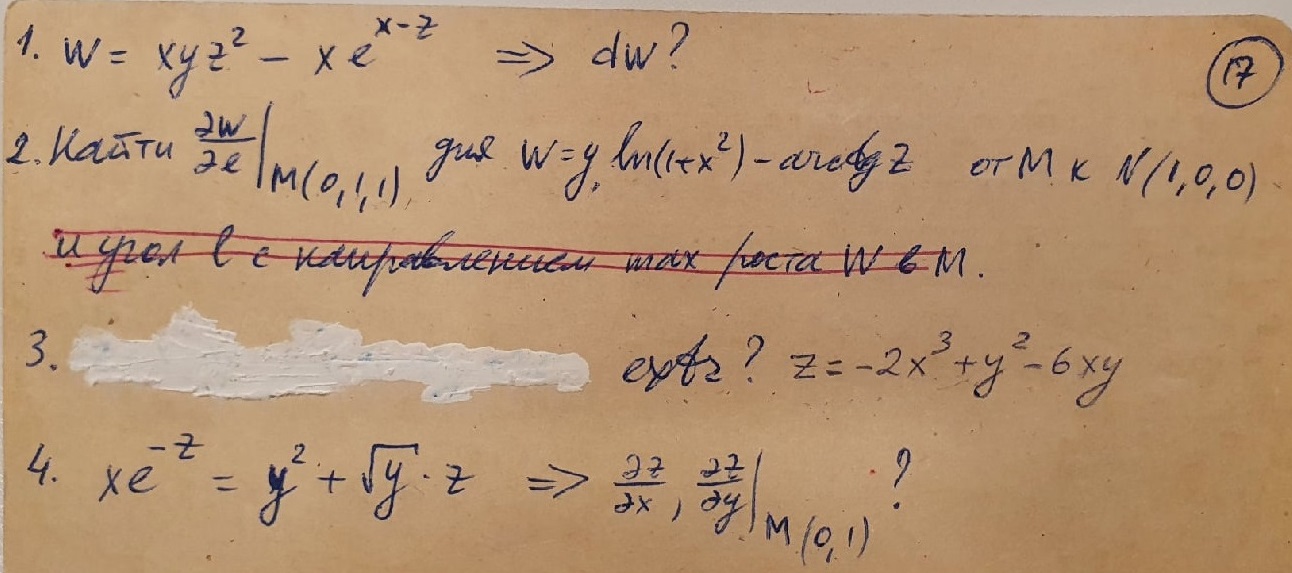 1. W = xyz² − xe^(x−z) ⇒ dw?
17
2. Найти ∂w/∂l |M(0,1,1) для W = y ln(1+x²) − arctg z от M к N(1,0,0)
и угол l с направлением max роста W в M.
3. extr? z = −2x³ + y² − 6xy
4. xe^(−z) = y² + √y · z ⇒ ∂z/∂x, ∂z/∂y |M(0,1) ?